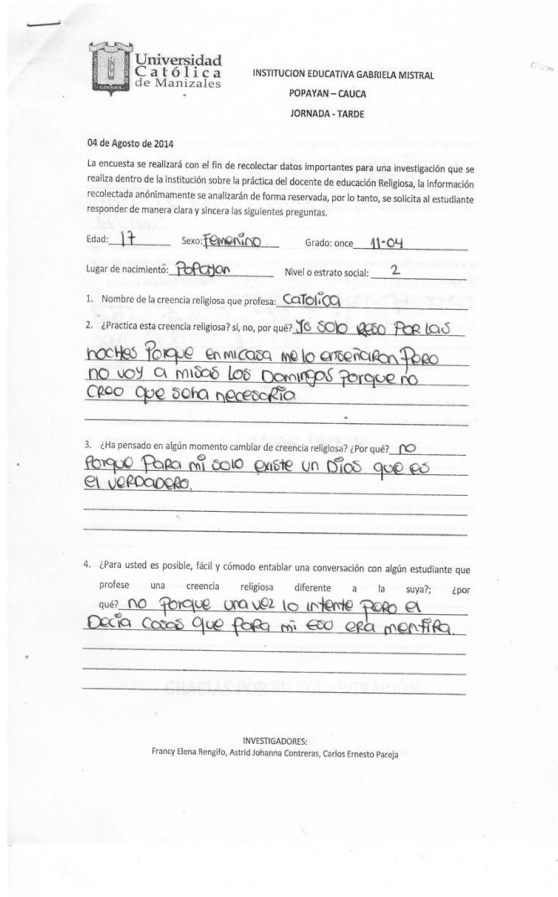 Universidad
Católica
de Manizales
INSTITUCION EDUCATIVA GABRIELA MISTRAL
POPAYAN – CAUCA
JORNADA - TARDE
04 de Agosto de 2014
La encuesta se realizará con el fin de recolectar datos importantes para una investigación que se
realiza dentro de la institución sobre la práctica del docente de educación Religiosa, la información
recolectada anónimamente se analizarán de forma reservada, por lo tanto, se solicita al estudiante
responder de manera clara y sincera las siguientes preguntas.
Edad: 17 Sexo: Femenino Grado: once 11-04
Lugar de nacimiento: Popayan Nivel o estrato social: 2
1. Nombre de la creencia religiosa que profesa: Catolica
2. ¿Practica esta creencia religiosa? si, no, por qué? Yo solo Reso Por las
noches Porque en mi casa me lo enseñaron Pero
no voy a misas los Domingos porque no
creo que seha necesario
3. ¿Ha pensado en algún momento cambiar de creencia religiosa? ¿Por qué? no
Porque Para mi solo existe un Dios que es
el verdadero.
4. ¿Para usted es posible, fácil y cómodo entablar una conversación con algún estudiante que
profese una creencia religiosa diferente a la suya?; ¿por
qué? no porque una vez lo intente pero el
Decia cosas que para mi eso era mentira
INVESTIGADORES:
Francy Elena Rengifo, Astrid Johanna Contreras, Carlos Ernesto Pareja